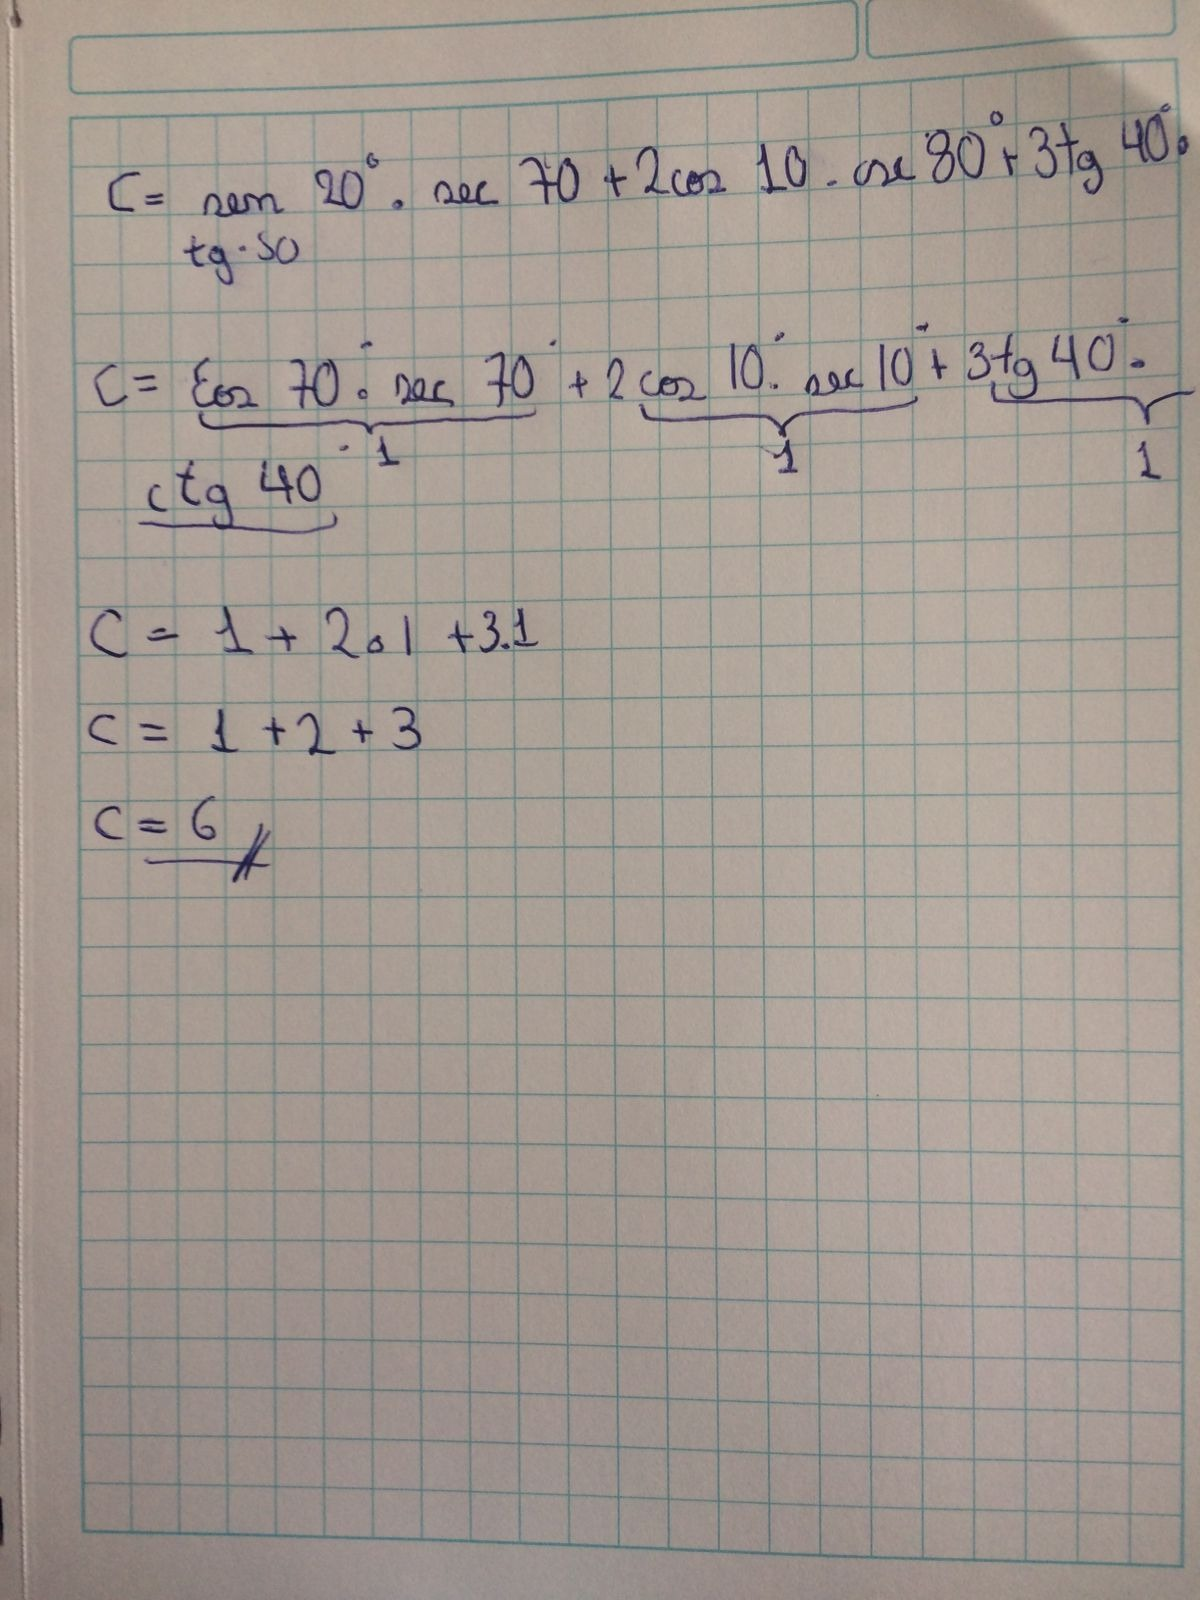 C = sen 20° . sec 70 + 2 cos 10 . csc 80° + 3 tg 40° .
tg · 50
C = Cos 70° . sec 70° + 2 cos 10° . sec 10° + 3 tg 40° .
1 1 1
ctg 40°
C = 1 + 2 . 1 + 3.1
C = 1 + 2 + 3
C = 6 //